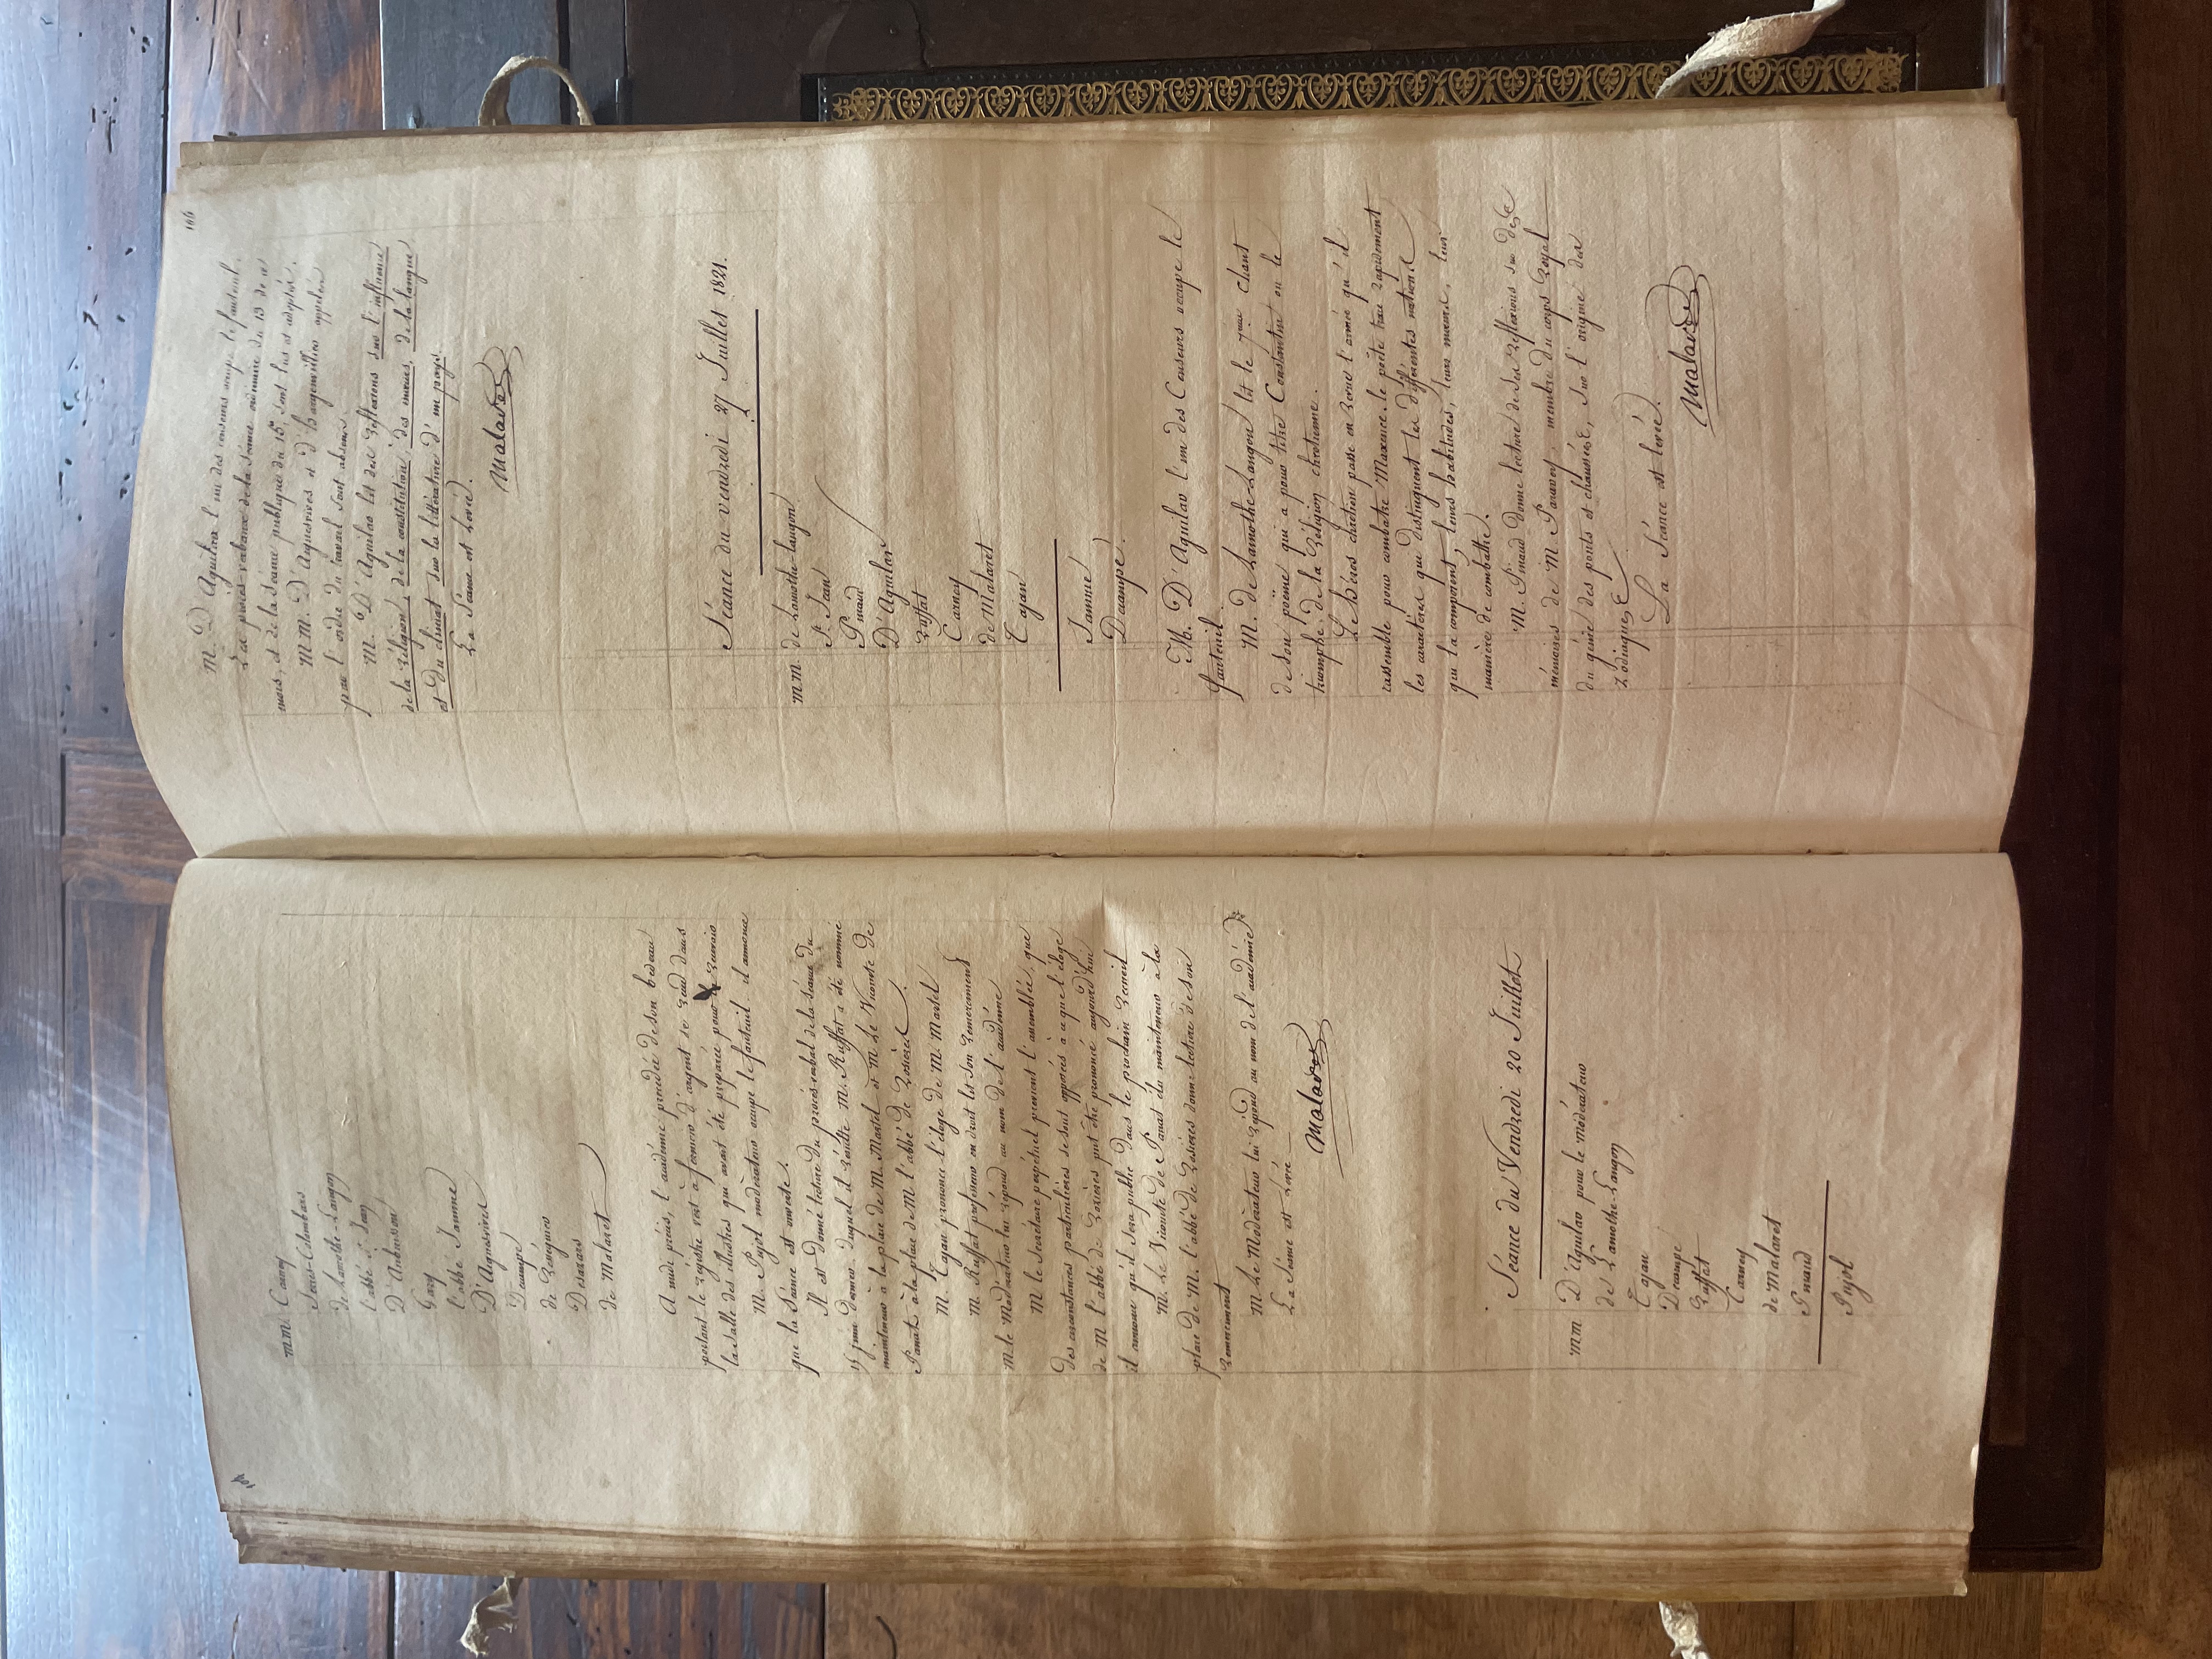 M.M. Carney
Jouis-Colombars
de Lamothe-Langon
l'abbé St Jean
D'Aubuisson
Gary
l'abbé Jamme
D'Aiguesvives
Decampe
de Rességuier
Desazars
de Malaret
A midi précis, l'académie précédée de son bedeau
portant le registre vert à fermoirs d'argent se rend dans
la salle des illustres qui avait été préparée pour la recevoir
M. Pujol modérateur occupe le fauteuil. il annonce
que la Séance est ouverte.
Il est donné lecture du procès-verbal de la séance du
15 juin dernier duquel il résulte M. Ruffat a été nommé
mainteneur à la place de M. Martel et M. Le Vicomte de
Panat à la place de M. l'abbé de Rosières.
M. Cajan prononce l'éloge de M. Martel
M. Ruffat professeur en droit lit son remerciement
M. le Modérateur lui répond au nom de l'académie
M le Secrétaire perpétuel prévient l'assemblée, que
des circonstances particulières se sont opposées à ce que l'éloge
de M. l'abbé de Rosières put être prononcé aujourd'hui
il annonce qu'il sera public dans le prochain recueil
M. Le Vicomte de Panat élu mainteneur à la
place de M. l'abbé de Rosières donne lecture de son
remerciement
M. Le Modérateur lui répond au nom de l'académie
La Séance est levée
Malaret
Séance du Vendredi 20 Juillet
MM D'Aguilar pour le modérateur
de Lamothe-Langon
Cajan
Decampe
Ruffat
Carney
de Malaret
Pinaud
Pujol
166
M. D'Aguilar l'un des censeurs occupe le fauteuil.
Les procès-verbaux de la séance ordinaire du 13 de ce
mois, et de la séance publique du 15, sont lus et adoptés.
M.M. D'Aiguesvives et d'Hargenvillier appelés
par l'ordre du travail sont absens.
M. D'Aguilar lit des réflexions sur l'influence
de la religion, de la constitution, des mœurs, de la langue
et du climat sur la littérature d'un pays.
La Séance est Levée.
Malaret
Séance du vendredi 27 Juillet 1821.
M.M. de Lamothe-langon
St Jean
Pinaud
D'Aguilar
Ruffat
Carney
de Malaret
Cajan
Jamme
Decampe.
M. D'Aguilar l'un des Censeurs occupe le
fauteuil.
M. de Lamothe-Langon lit le 7me chant
de son poëme qui a pour titre Constantin ou le
triomphe de la Religion chrétienne.
Le héros chrétien passe en revue l'armée qu'il
rassemble pour combattre Maxence. le poète trace rapidement
les caractères qui distinguent les différentes nations
qui la composent, leurs habitudes, leurs mœurs, leur
manière de combattre.
M. Pinaud donne lecture de ses réflexions sur des
mémoires de M. Paravey, membre du corps Royal
du génie des ponts et chaussées, sur l'origine des
Zodiaques
La Séance est levée.
Malaret